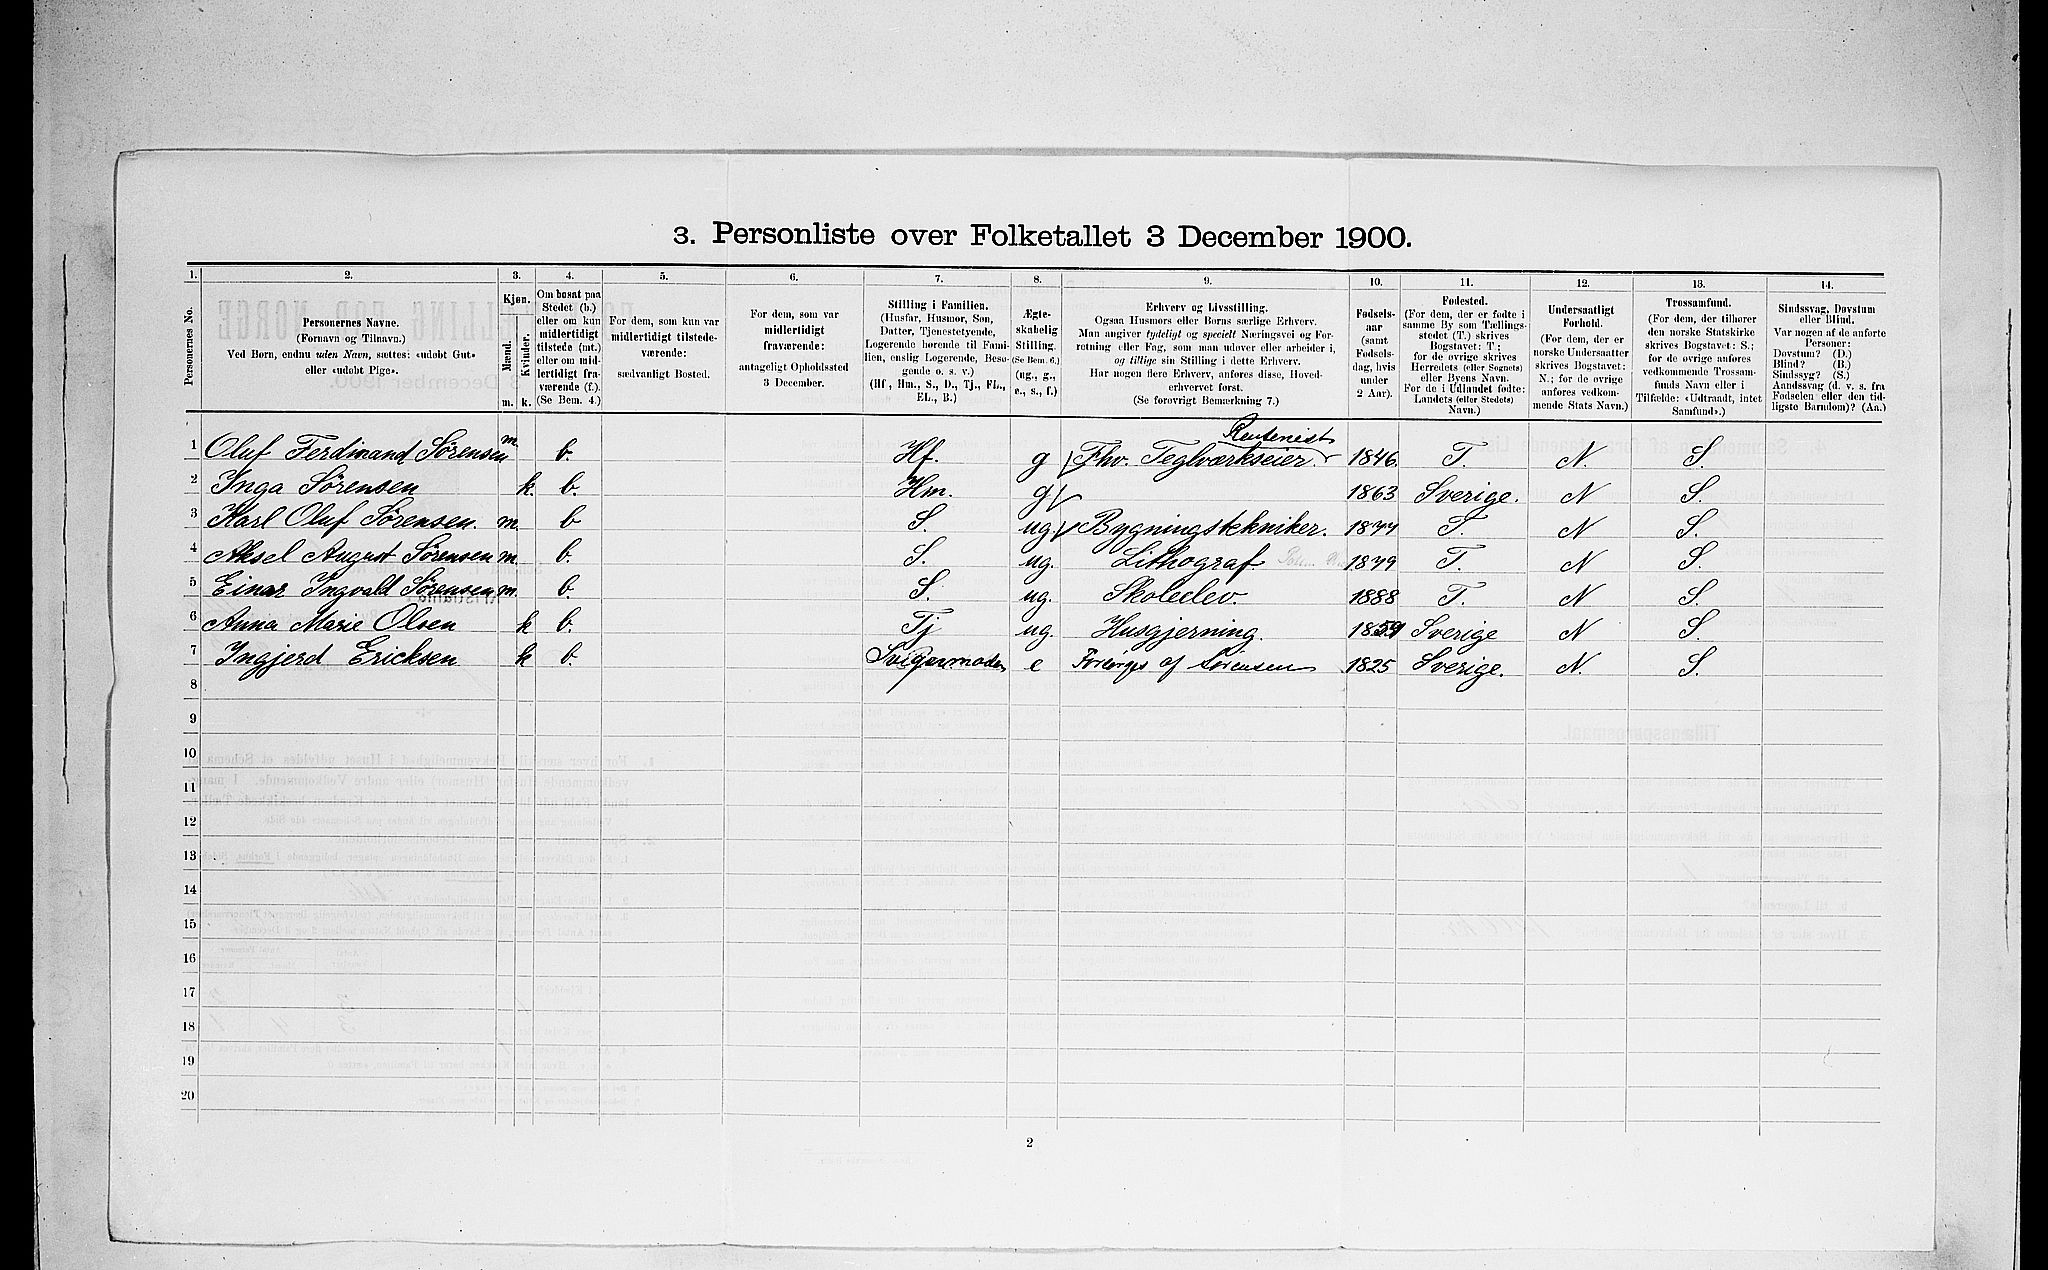 3. Personliste over Folketallet 3 December 1900.
1. 2. 3. 4. 5. 6. 7. 8. 9. 10. 11. 12. 13. 14.
Personernes No.
Personernes Navne.
(Fornavn og Tilnavn.)
Ved Børn, endnu uden Navn, sættes: «udøbt Gut»
eller «udøbt Pige».
Kjøn.
Mænd.
Kvinder.
m. k.
Om bosat paa
Stedet (b.)
eller om kun
midlertidigt
tilstede (mt.)
eller om mid-
lertidigt fra-
værende (f.).
(Se Bem. 4.)
For dem, som kun var
midlertidigt tilstede-
værende:
sædvanligt Bosted.
For dem, som var
midlertidigt
fraværende:
antageligt Opholdssted
3 December.
Stilling i Familien.
(Husfar, Husmor, Søn,
Datter, Tjenestetyende,
Logerende hørende til Fami-
lien, enslig Logerende, Besø-
gende o. s. v.)
(Hf, Hm., S., D., Tj., FL.,
EL., B.)
Ægte-
skabelig
Stilling.
(Se Bem. 6.)
(ug., g.,
e., s., f.)
Erhverv og Livsstilling.
Ogsaa Husmors eller Børns særlige Erhverv.
Man angiver tydeligt og specielt Næringsvei og For-
retning eller Fag, som man udøver eller arbeider i,
og tillige sin Stilling i dette Erhverv.
Har nogen flere Erhverv, anføres disse, Hoved-
erhvervet først.
(Se forøvrigt Bemærkning 7.)
Fødsels-
aar
(samt
Fødsels-
dag, hvis
under
2 Aar).
Fødested.
(For dem, der er fødte i
samme By som Tællings-
stedet (T.) skrives
Bogstavet: T.;
for de øvrige skrives
Herredets (eller Sognets)
eller Byens Navn.
For de i Udlandet fødte:
Landets (eller Stedets)
Navn.)
Undersaatligt
Forhold.
(For dem, der er
norske Undersaatter
skrives Bogstavet:
N.; for de øvrige
anføres vedkom-
mende Stats Navn.)
Trossamfund.
(For dem, der tilhører
den norske Statskirke
skrives Bogstavet: S.;
for de øvrige anføres
vedkommende Trossam-
funds Navn eller i
Tilfælde: «Udtraadt, intet
Samfund».)
Sindssvag, Døvstum
eller Blind.
Var nogen af de anførte
Personer:
Døvstum? (D.)
Blind? (B.)
Sindssyg? (S.)
Aandssvag (d. v. s. fra
Fødselen eller den tid-
ligste Barndom)? (Aa.)
Rentenist
1 Oluf Ferdinand Sørensen m. b. Hf. g Fhv. Teglværkseier. 1846. T. N. S.
2 Inga Sørensen k. b. Hm. g 1863 Sverige. N S.
3 Karl Oluf Sørensen. m. b S. ug. Bygningstekniker. 1877 T. N S.
4 Aksel August Sørensen m. b. S. ug. Lithograf. 1879 T. N S.
5 Einar Ingvald Sørensen m. b. S. ug. Skoleelev. 1888 T. N S.
6 Anna Marie Olsen k b. Tj ug. Husgjerning. 1859 Sverige N S.
7 Ingjerd Ericksen k b. Svigermoder e Forsørges af Sørensen 1825 Sverige. N. S.
8
9
10
11
12
13
14
15
16
17
18
19
20
2